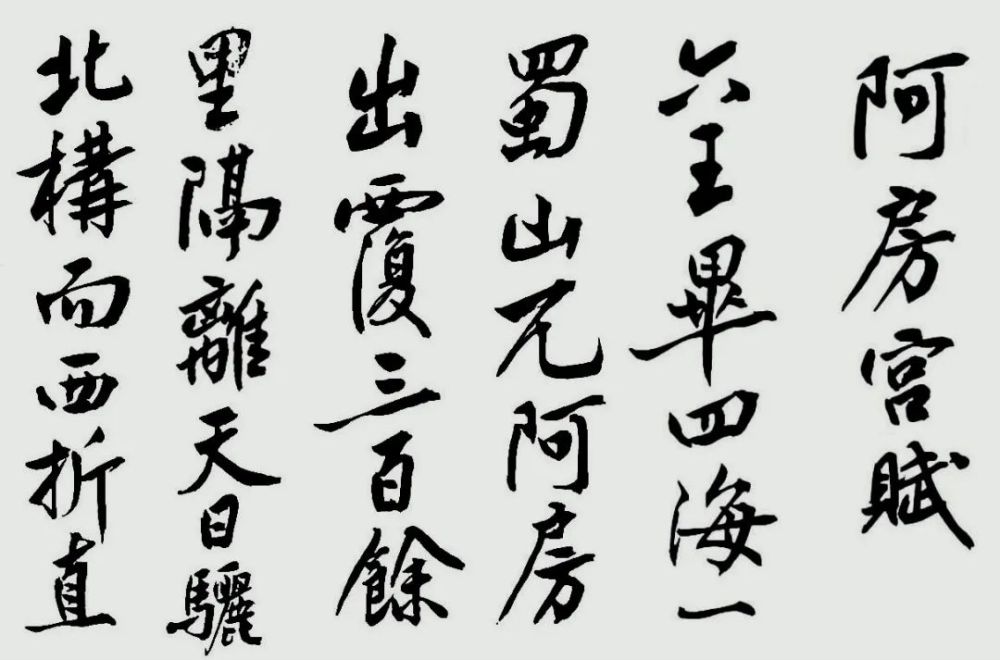 阿房宮賦
六王畢四海一
蜀山兀阿房
出覆三百餘
里隔離天日驪
北構而西折直